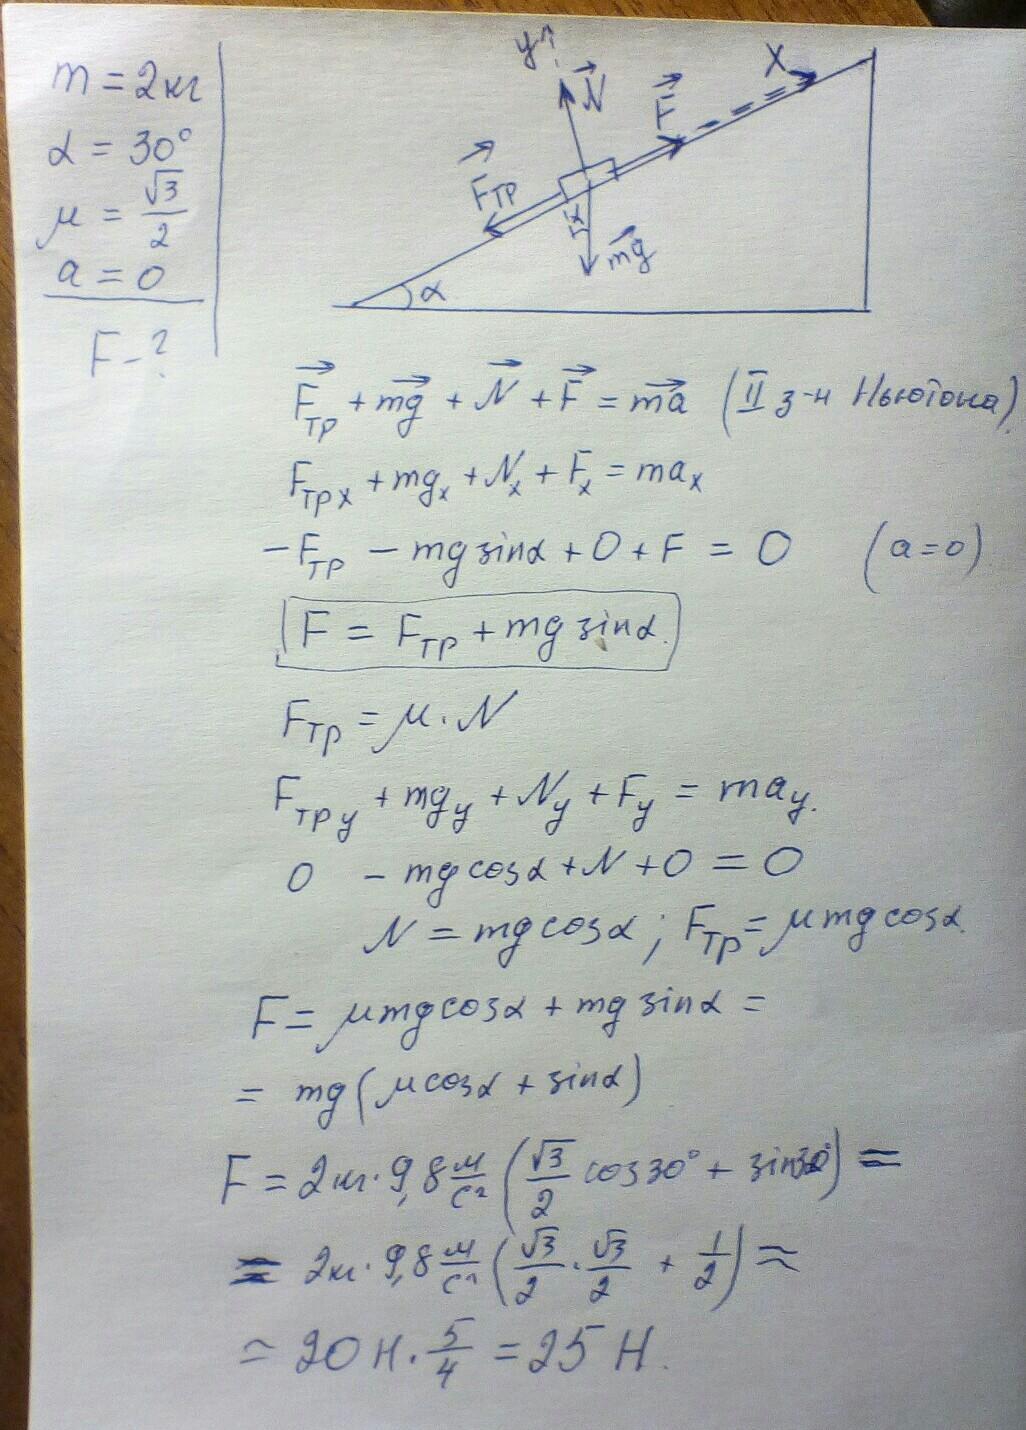 m = 2кг
α = 30°
μ = √3/2
a = 0
F - ?
y
N⃗
F⃗
X
F⃗тр
α
mg⃗
α
F⃗тр + mg⃗ + N⃗ + F⃗ = ma⃗ (II з-н Ньютона)
Fтрx + mgx + Nx + Fx = max
-Fтр - mg sinα + 0 + F = 0 (a=0)
F = Fтр + mg sinα.
Fтр = μ·N
Fтрy + mgy + Ny + Fy = may.
0 - mg cosα + N + 0 = 0
N = mg cosα ; Fтр = μmg cosα.
F = μmg cosα + mg sinα =
= mg(μcosα + sinα)
F = 2кг·9,8 м/с² (√3/2 cos30° + sin30°) =
= 2кг·9,8 м/с² (√3/2 · √3/2 + 1/2) ≈
≃ 20Н · 5/4 = 25 Н.